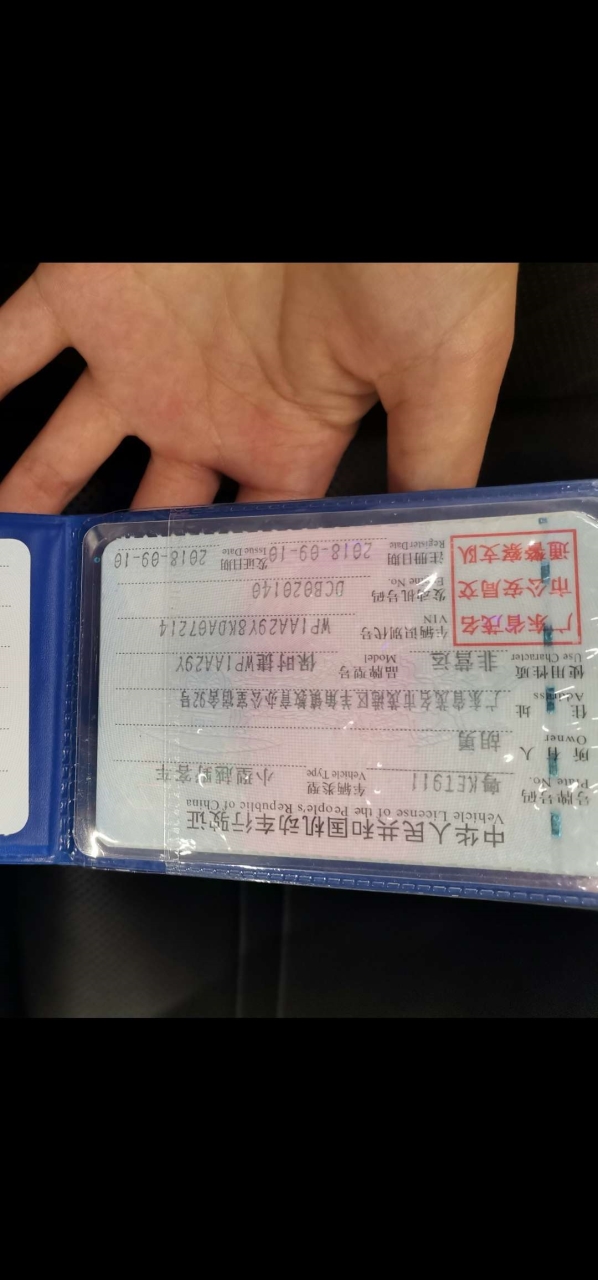 中华人民共和国机动车行驶证
Vehicle License of the People's Republic of China
号牌号码 粤KET911 车辆类型 小型越野客车
Plate No. Vehicle Type
所有人 胡勇
Owner
住址 广东省茂名市茂港区羊角镇教育办公室宿舍92号
Address
使用性质 非营运 品牌型号 保时捷WP1AA29Y
Use Character Model
广东省茂名
市公安局交
通警察支队
车辆识别代号 WP1AA29Y8KDA07214
VIN
发动机号码 DCB020140
Engine No.
注册日期 2018-09-10 发证日期 2018-09-10
Register Date Issue Date